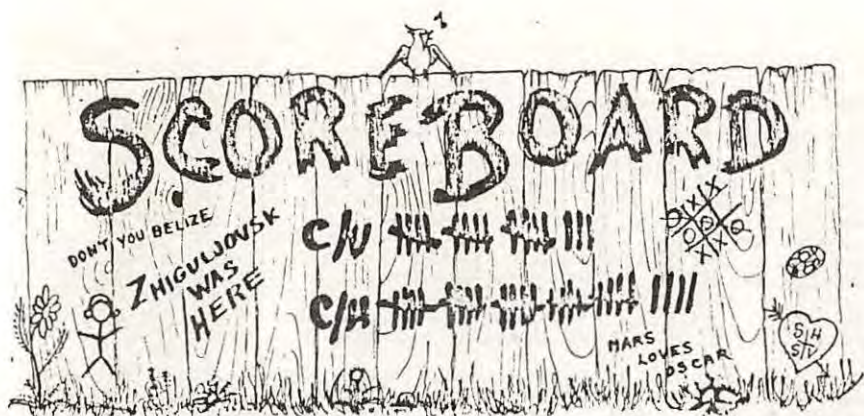 SCOREBOARD
DON'T YOU BELIZE
ZHIGULJOVSK
WAS
HERE
C/V
C/H
MARS
LOVES
OSCAR
X X
O O O
X X
S/H
S/V